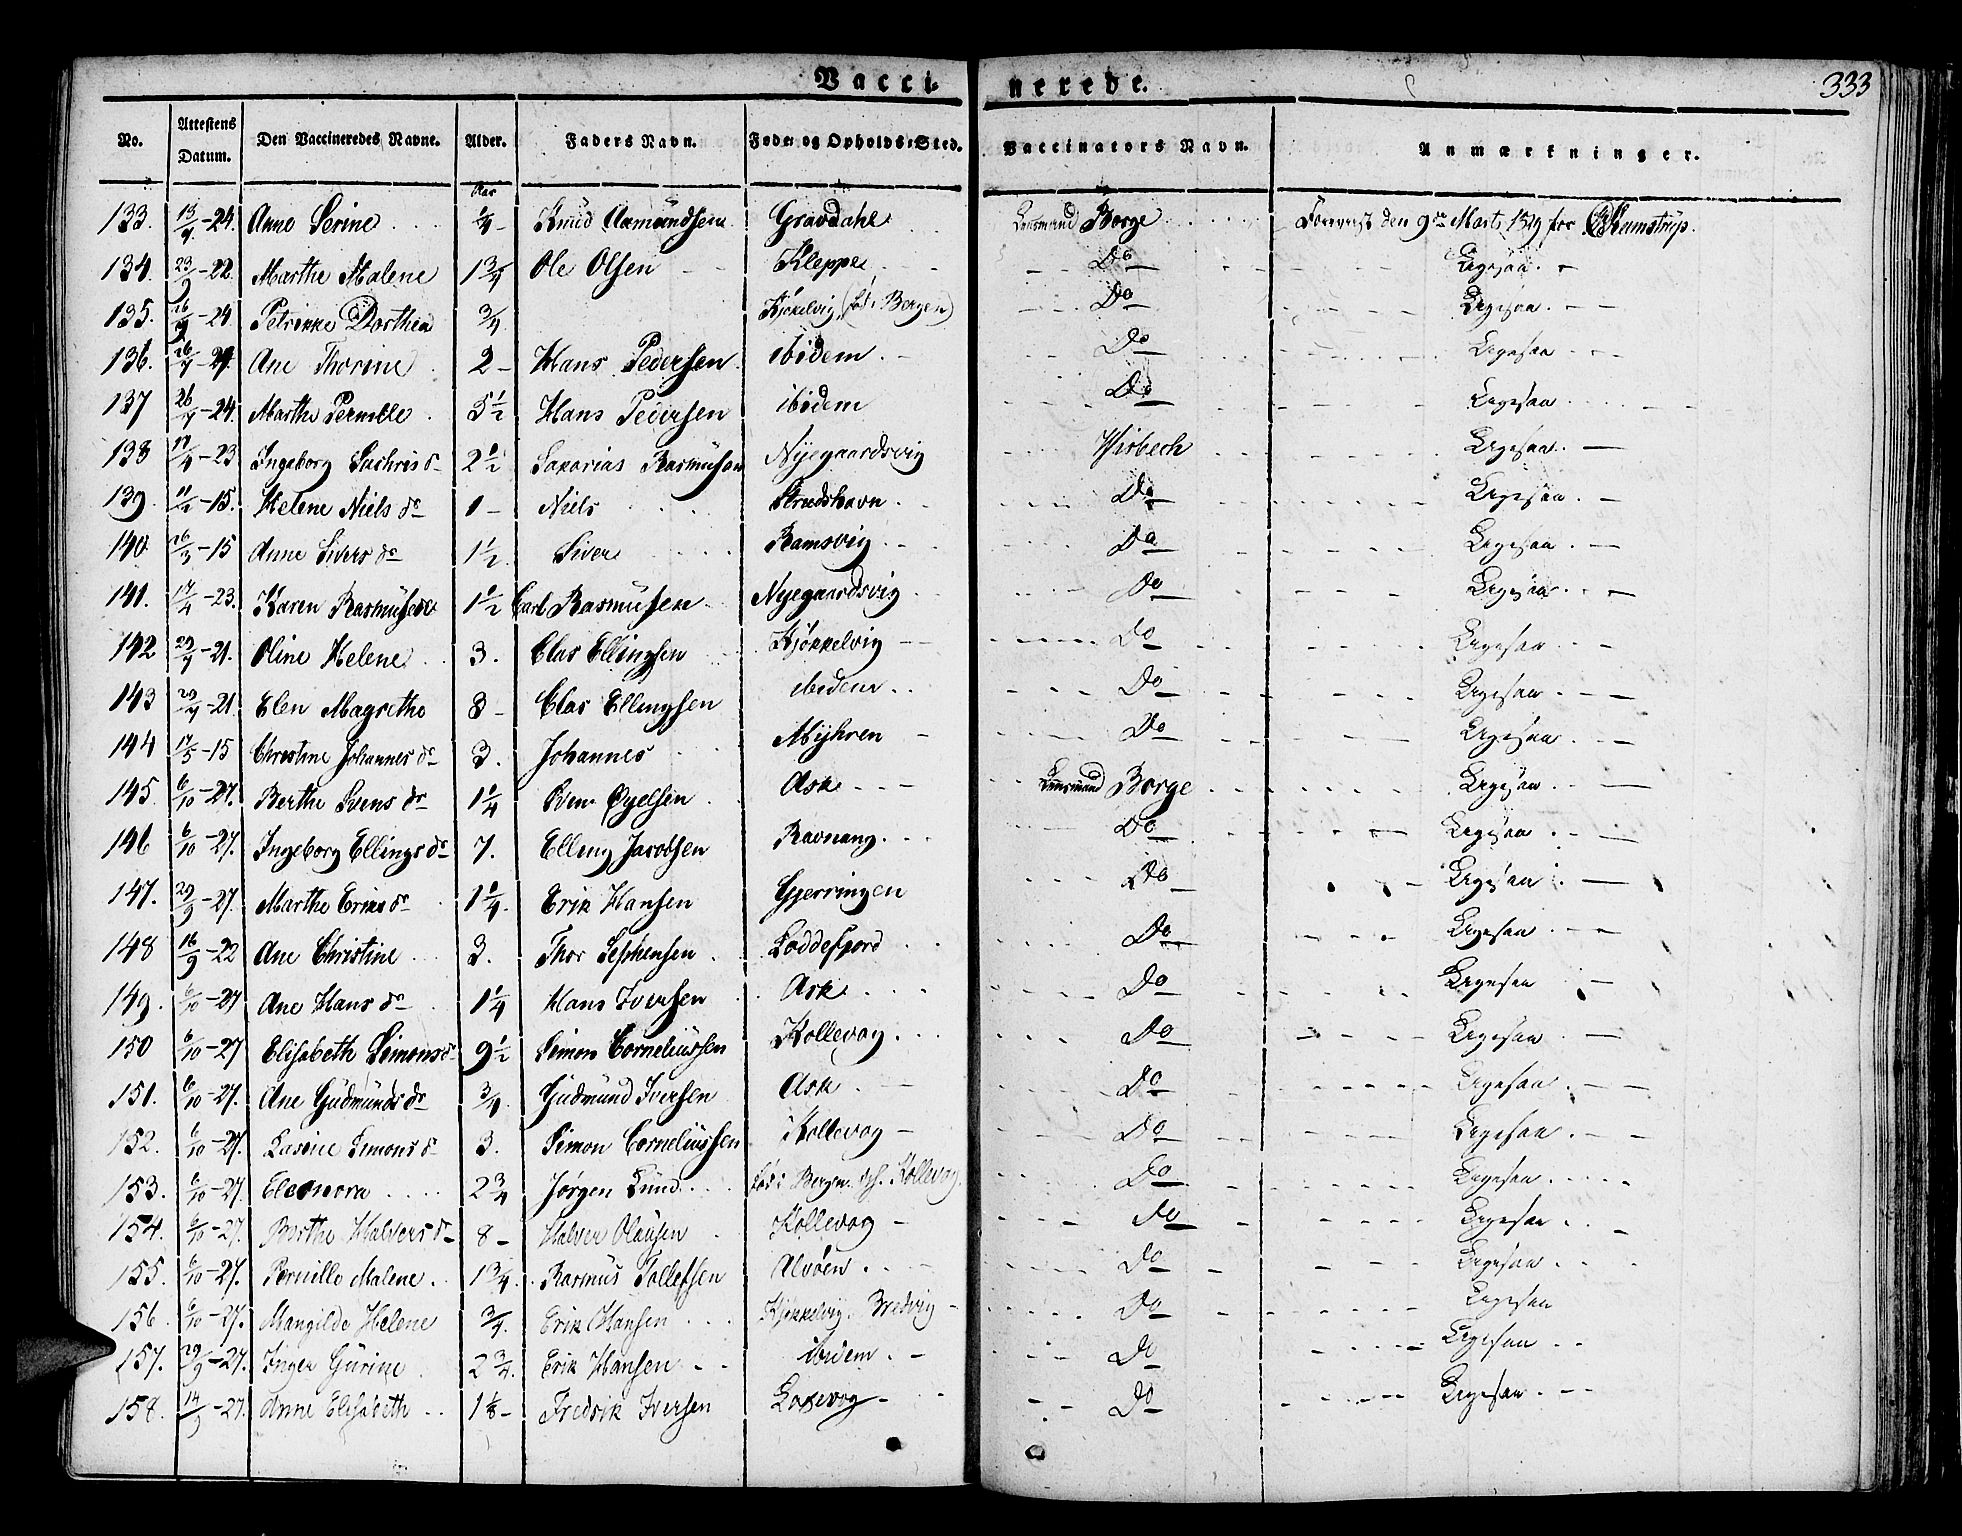 Vaccinerede. 333
No. Attestens Datum. Den Vaccineredes Navne. Alder. Faders Navn. Føde- og Opholds-Sted. Vaccinators Navn. Anmærkninger.
Aar
133. 13/4-24. Anne Serine 1/4 Knud Aamundsen Gravdahl Lensmand Borge Foreviist den 9de Marts 1829 for
134. 23/9-22. Marthe Malene 1 3/4 Ole Olsen Kleppe Do Ligesaa.
135. 26/9-24 Petrikke Dorthea 3/4 Kjøkelvig (fød i Bergen) Do Ligesaa.
136. 26/4-24. Ane Thorine 2 - Hans Pedersen ibidem Do Ligesaa
137 26/4-24. Marthe Pernille 5 1/2 Hans Pedersen ibidem Do Ligesaa
138 17/4-23 Ingeborg Sachrisdr 2 1/2 Saxarias Rasmusen Nyegaardsvig Wisbech Ligesaa.
139. 11/2-15. Helene Niels dr 1 - Niels Strudshavn Do Ligesaa.
140. 26/3-15 Anne Sivers dr 1 1/2. Siver Ramsvig Do Ligesaa
141. 17/4-23. Karen Rasmusene 1 1/2 Carl Rasmusen Nyegaardsvig Do Ligesaa
142 29/4-21. Oline Helene 3. Clas Ellingsen Kjøkkelvig Do Ligesaa
143 29/4-21 Elen Magrethe 8 - Clas Ellingsen ibidem Do Ligesaa
144 17/5-15 Christine Johannes dr 3. Johannes Myhren Do Ligesaa
145. 6/10-27. Berthe Svens dr 1 1/4 Sven Øyelsen Ask Lensmand Borge Ligesaa
146 6/10-27. Ingeborg Ellings dr 7. Elling Jacobsen Ravnang Do Ligesaa
147. 29/9-27. Marthe Eriks dr 1 1/4. Erik Hansen Gjerringen Do Ligesaa
148 16/9-22 Ane Christine 3. Thor Sephensen Loddefjord Do Ligesaa
149. 6/10-27 Ane Hans dr 1 1/4 Hans Iversen Ask Do Ligesaa
150 6/10-27 Elisabeth Simonsdr 9 1/2 Simon Corneliussen Kollevog Do Ligesaa
151. 6/10-27. Ane Gudmunds dr 3/4. Gudmund Iversen Ask Do Ligesaa
152. 6/10-27. Lasine Simonsdr 3. Simon Corneliussen Kollevog Do Ligesaa
153. 6/10-27. Eleonora 2 3/4 Jørgen Lund fød i Bergen. Kollevog. Do Ligesaa
154. 6/10-27. Berthe Halvers dr 8 - Halver Olausen Kollevog Do Ligesaa
155. 6/10-27. Pernille Malene 1 3/4. Rasmus Tollefsen Alvøen Do Ligesaa
156. 6/10-27. Mangilde Helene 3/4. Erik Hansen Kjøkkelvig. Bredvig Do Ligesaa
157. 29/9-27. Inger Gurine 2 3/4. Erik Hansen ibidem Do Ligesaa
158. 14/9-27. Anne Elisabeth 1 1/8 - Fredrik Iversen Laxevog Do Ligesaa